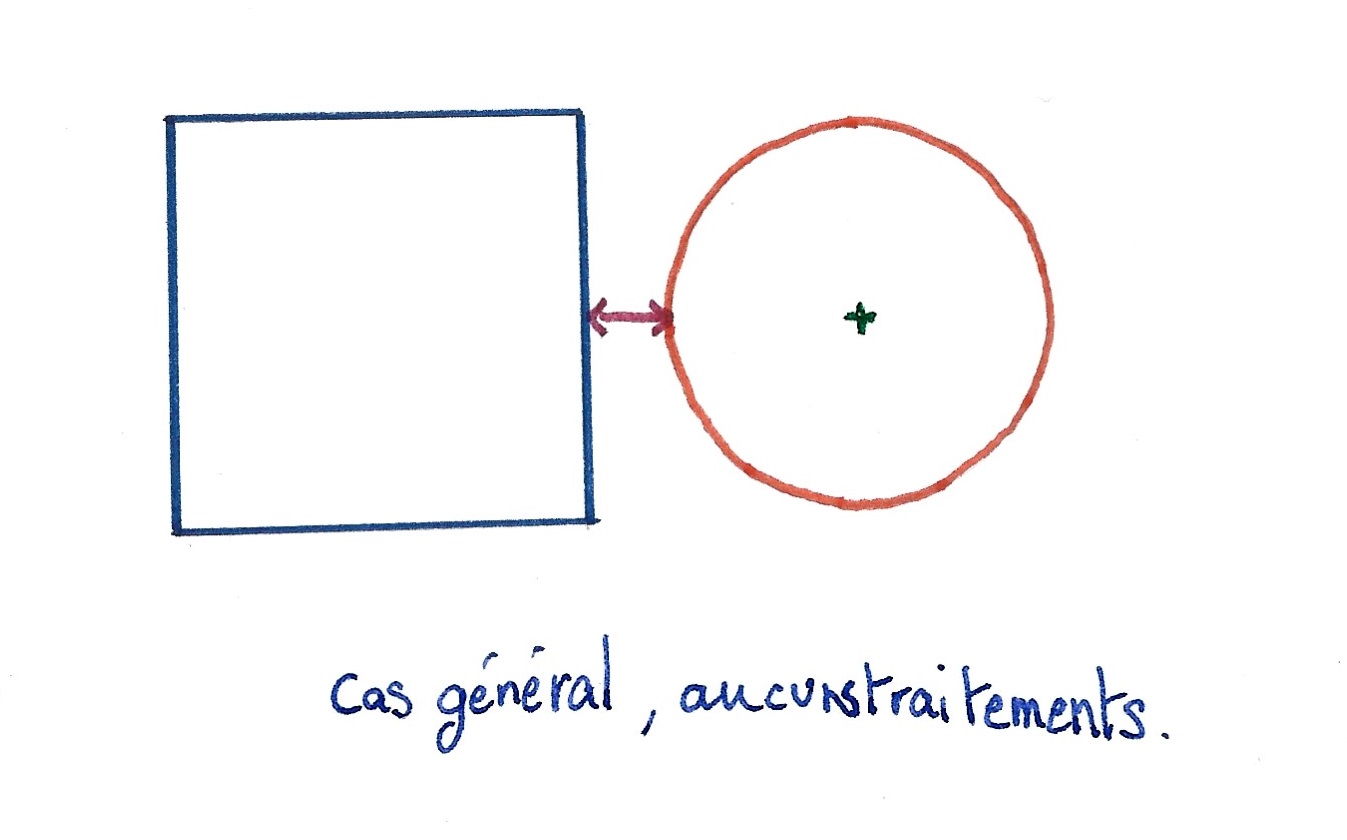 Cas général, aucunstraitements.